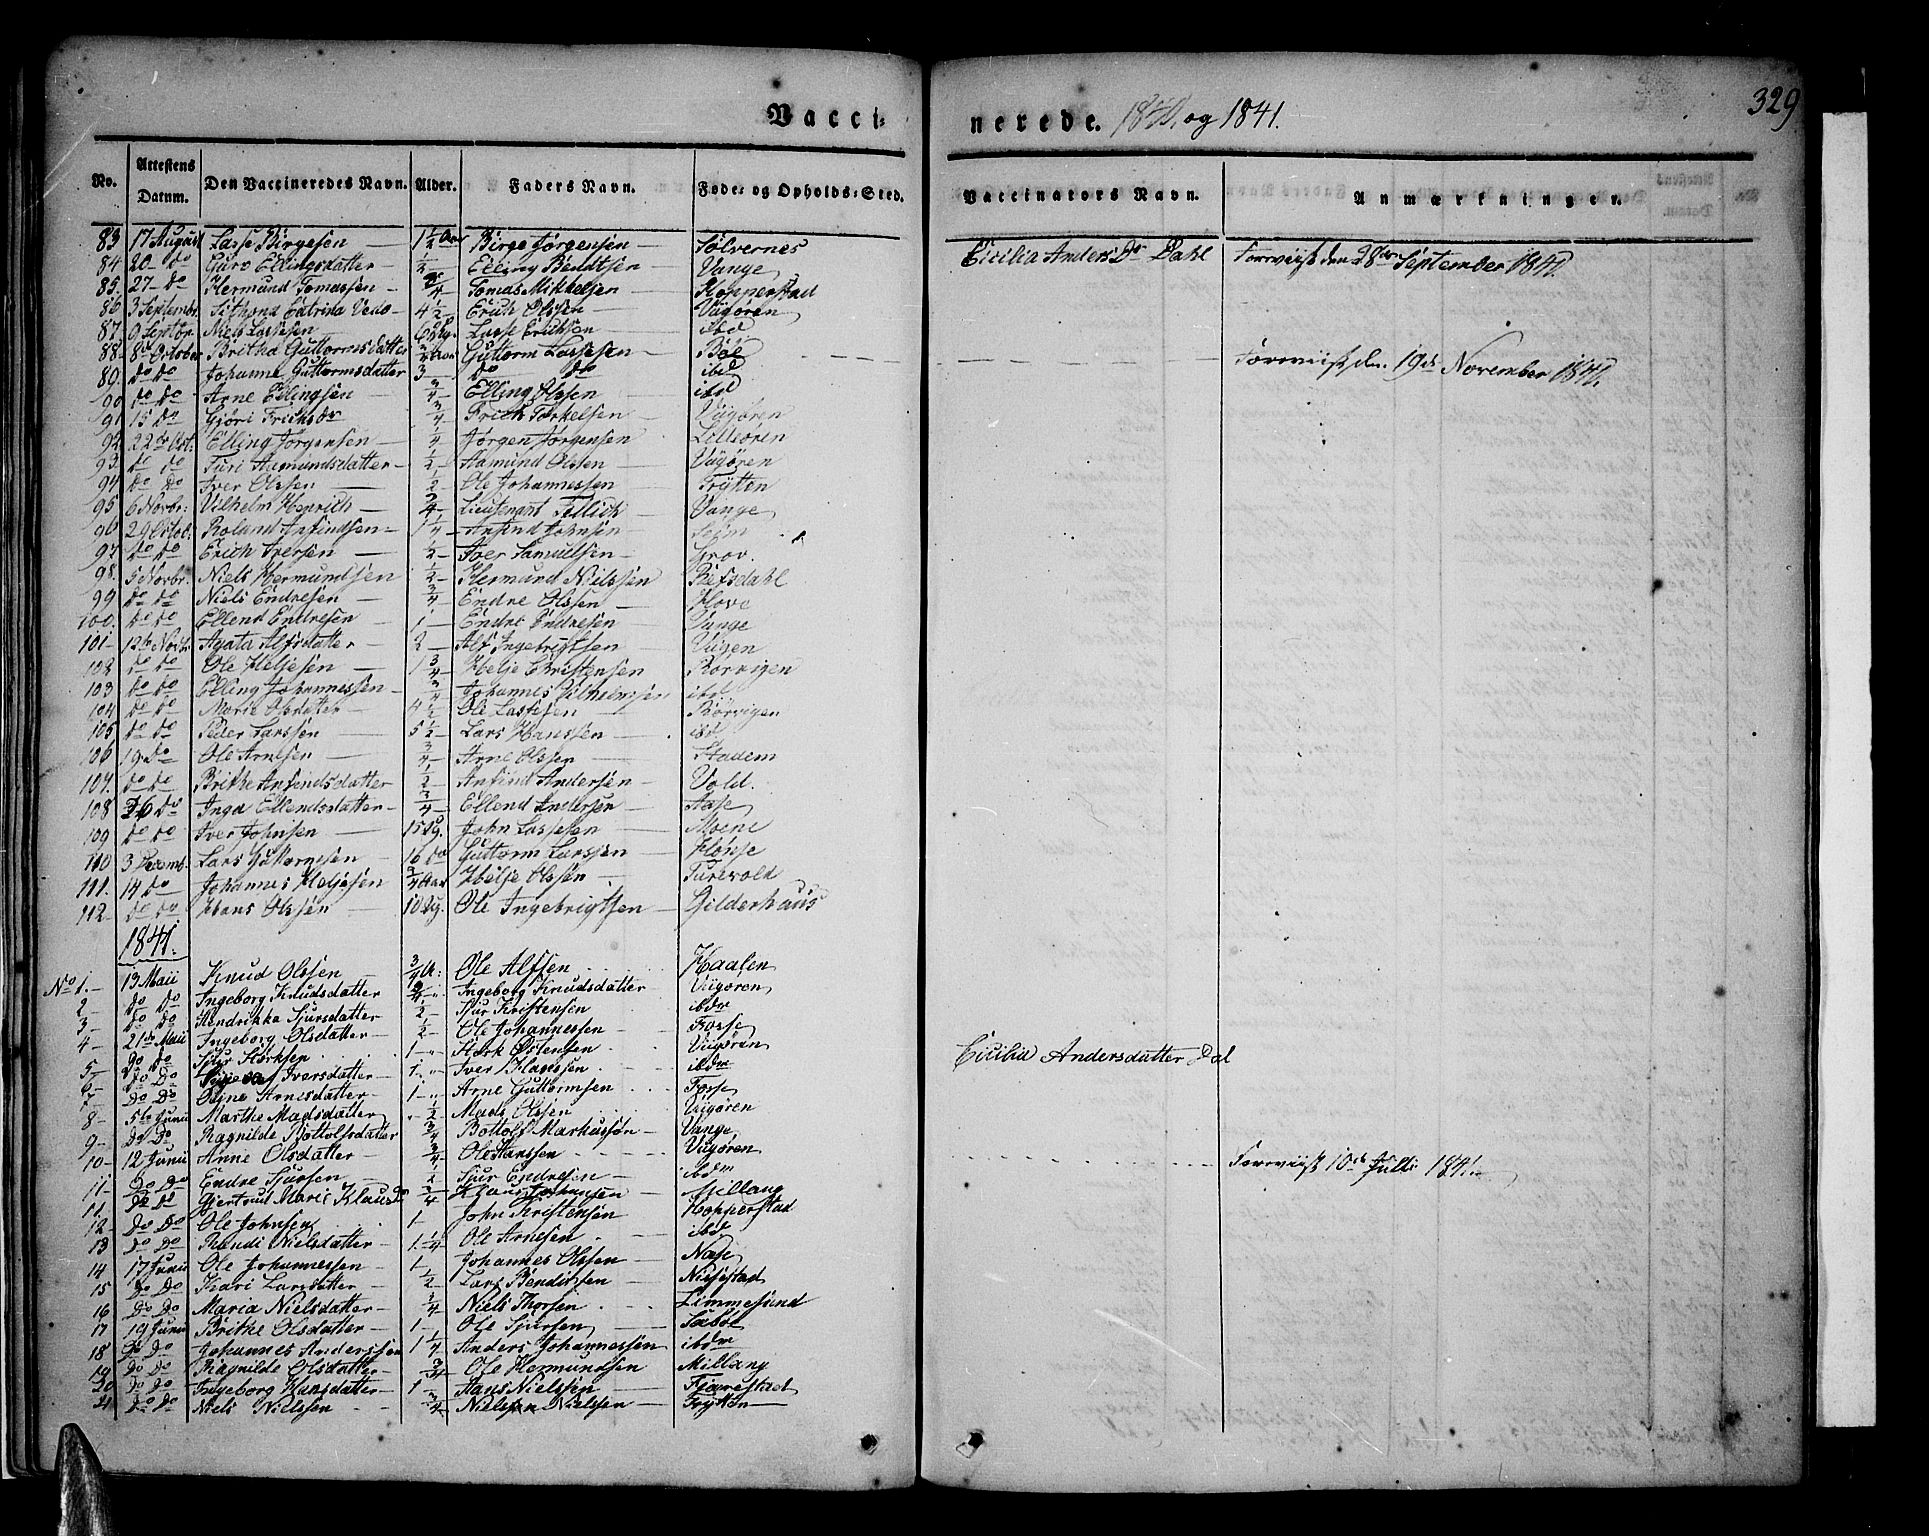 Vacci-nerede. 1840 og 1841.
329
No. Attestens Datum. Den Vaccineredes Navn. Alder. Faders Navn. Føde- og Opholds-Sted. Vaccinators Navn. Anmærkninger.
83 17 August Lasse Birgesen 1 1/2 Aar Birge Jørgensen Sølvernes Cicilia Anders Dr Dahl Foreviist den 28de September 1840
84 20 do Guro Ellingsdatter 1/2 Elling Bendtsen Vange
85 27 do Hermund Tomassen 3/4 Tomas Mikkelsen Hopperstad
86 3 Septembr Catrina 4 1/2 Erich Olssen Viigøren
87 9 Septbr Niels Lassesen 6 Lasse Ericksen ibd
88 8d October Britha Guttormsdatter 3/4 Aar Guttorm Lassesen Bøe Foreviist den 19de November 1840.
89 do do Johanne Guttormsdatter 3 do do ibd
90 do do Arne Ellingsen 3/4 Elling Olssen ibd
91 15 do Gjøri 3/4 Viigøren
92 22de Oct: Elling Jørgensen 1/4 Jørgen Jørgensen Lilleøren
93 do do Turi Aamundsdatter 1/2 Aamund Olssen Viigøren
94 do do Iver Olssen 1/2 Ole Johannessen Trytten
95 6 Novbr: Vilhelm Henrich 3/4 Lieutenant Vange
96 29 Octob: Roland Ansindsen 1 1/4 Anfind Johnsen Seim
97 do do Erich Iversen 1/2 Iver Samuelsen Grov.
98 5 Novbr. Niels Hermundsen 1/2 Hermund Nielssen Refsdahl
99 do do Niels Endresen 3/4 Endre Olssen Hove
100. do do Ellend Endresen 1 Endre Endresen Vange
101 12te Novbr Agata Alfsdatter 2 Alf Ingebrigtsen Viigen
102 do do Ole Heljesen 1 3/4 Helje Christensen Rørvigen
103 do do Elling Johannessen 3/4 Johannes Vilhelmsen ibd
104 do do Marie Olsdatter 4 1/2 Ole Lassesen Rørvigen
105 do do Peder Larssen 5 1/2 Lars Hanssen ibd
106 19 do Ole Arnesen 3/4 Arne Olssen Stadem
107. do do Brithe Anfindsdatter 1/2 Anfind Andersen Vold.
108 26 do Inga Ellendsdatter 3/4 Ellend Andersen Aase
109 do do Iver Johnsen 15 Ug. John Lassesen Moene
110 3 Decemb. Lars Guttormsen 16 do Guttorm Larssen Hønse
111. 14 do Johannes Heljesen 3/4 Aar Helje Olssen Turevold
112 do do Hans Olssen 10 Ug. Ole Ingebrigtsen Gilderhuus
1841.
No 1. 13 Maii Knud Olssen 3/4 A: Ole Alfsen Haalen
2 do do Ingeborg Knudsdatter Ingeborg Knudsdatter Viigøren
3 do do Hendrikka Sjursdatter 1/2 Sjur Kristensen ibdm
4 21de Maii Ingeborg Olsdatter 1/2 Ole Johannessen Fosse
5 do do Sjur Størksen 1 Størk Østensen Viigøren Cicilia Andersdatter Dal
6 do do Iversdatter 1 Iver Hanssen ibdm
7 do do Arnesdatter 1 Arne Guttormsen Fosse
8 5te Junii Marthe Madsdatter 1/2 Mads Olssen Viigøren
9 do do Ragnilde Bottolfsdatter 3/4 Bottolf Markussøn Vange
10 12 Junii Anne Olsdatter 3/4 Ole Hanssen Viigøren Foreviist 10de Julii 1841
11 do do Endre Sjursen 1/2 Sjur Endresen ibdm
11. do do Gjertrud Marie Klausdr 3/4 Klaus Johansen Millang
12 do do Ole Johnsen 1 John Kristensen Hopperstad
13 do do Randi Nielsdatter 1 1/4 Ole Arnesen ibd
14 17 Junii Ole Johannessen 1 Johannes Olssen Nase
15 do do Kari Larsdatter 1/2 Lars Bendixsen Nissestad
16 do do Maria Nielsdatter 3/4 Niels Thorsen Limmesand
17 19 Junii Brithe Olsdatter 1 Ole Sjursen Sæbøe
18 do do Johannes Anderssen 1 1/4 Anders Johannessen ibdm
19 do do Ragnilde Olsdatter 3/4 Ole Hermundsen Millang
20 do do Ingeborg Hansdatter 1 Hans Nielssen Fjærestad
21 do do Niels Nielssen 3/4 Nielssen Nielssen Trytten